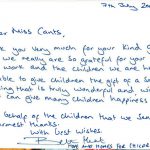 7th July 20
ear Miss Cants,
k you very much for your kind
we really are so grateful for your
work and the children we are
able to give children the gift of a so
ing that is truly wonderful and wi
can give many children happiness
behalf of the children that we sen
rmest thanks.
With best wishes.
HOPE AND HOMES FOR CHILDRE